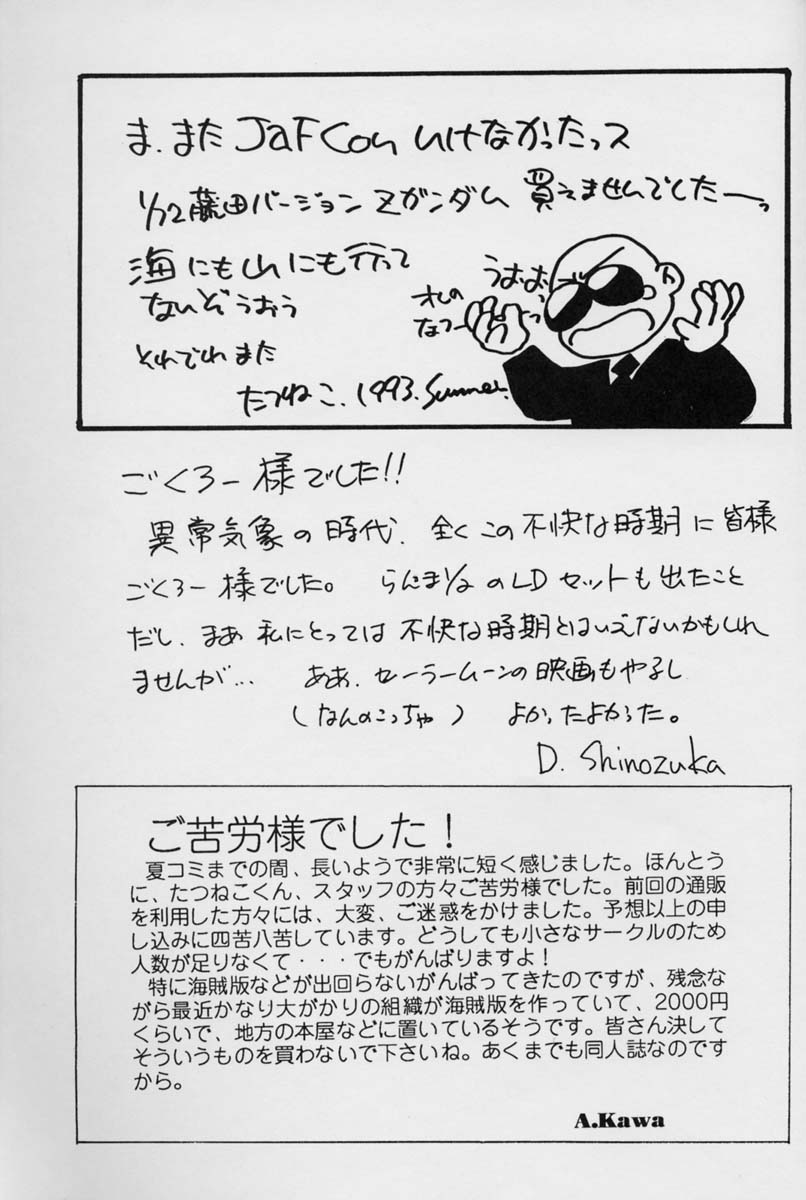 ま、また JaFCon いけなかったっス
1/72藤田バージョンZガンダム 買えませんでしたーっ
海にも山にも行って
ないぞうおう
うおおっ
オレの
なつーっ
それでわまた
たつねこ. 1993. Summer.
ごくろー様でした!!
異常気象の時代、全くこの不快な時期に皆様
ごくろー様でした。 らんま1/2のLDセットも出たこと
だし、まあ私にとっては不快な時期とはいえないかもしれ
ませんが… ああ、セーラームーンの映画もやるし
(なんのこっちゃ) よかったよかった。
D. Shinozuka
ご苦労様でした!
夏コミまでの間、長いようで非常に短く感じました。ほんとう
に、たつねこくん、スタッフの方々ご苦労様でした。前回の通販
を利用した方々には、大変、ご迷惑をかけました。予想以上の申
し込みに四苦八苦しています。どうしても小さなサークルのため
人数が足りなくて・・・でもがんばりますよ!
特に海賊版などが出回らないがんばってきたのですが、残念な
がら最近かなり大がかりの組織が海賊版を作っていて、2000円
くらいで、地方の本屋などに置いているそうです。皆さん決して
そういうものを買わないで下さいね。あくまでも同人誌なのです
から。
A.Kawa